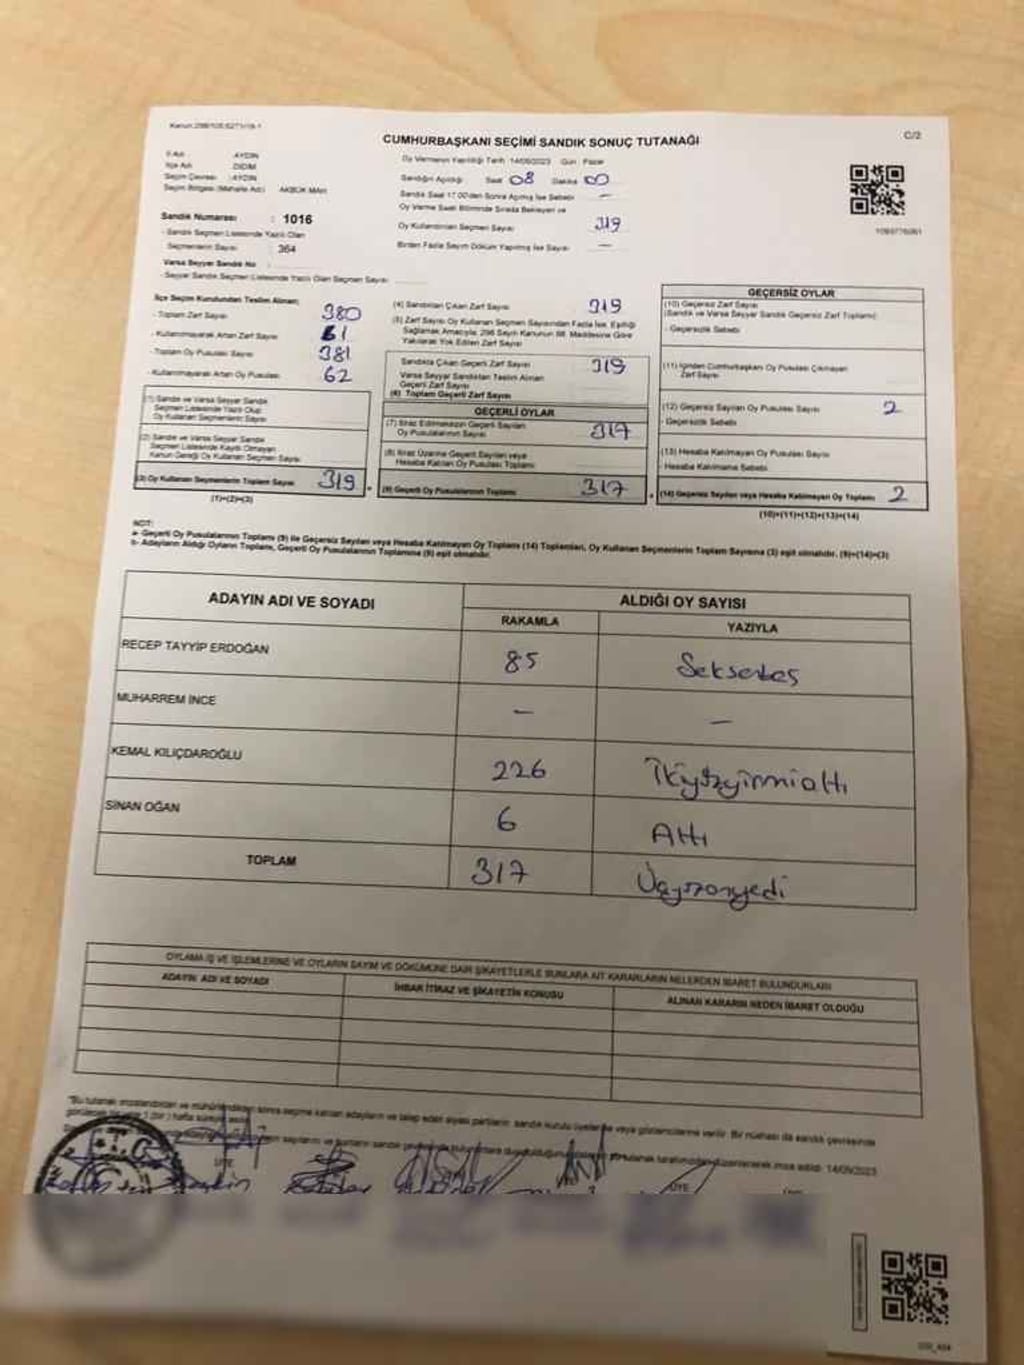 Kanun:298/105;6271/19-1
CUMHURBAŞKANI SEÇİMİ SANDIK SONUÇ TUTANAĞI
C/2
İl Adı : AYDIN
İlçe Adı : DİDİM
Seçim Çevresi : AYDIN
Seçim Bölgesi (Mahalle Adı) : AKBÜK MAH.
Sandık Numarası : 1016
- Sandık Seçmen Listesinde Yazılı Olan
Seçmenlerin Sayısı : 364
Varsa Seyyar Sandık No :
- Seyyar Sandık Seçmen Listesinde Yazılı Olan Seçmen Sayısı
Oy Vermenin Yapıldığı Tarih 14/05/2023 Gün : Pazar
Sandığın Açıldığı Saat 08 Dakika 00
Sandık Saat 17.00'den Sonra Açılmış İse Sebebi —
Oy Verme Saati Bitiminde Sırada Bekleyen ve
Oy Kullandırılan Seçmen Sayısı 319
Birden Fazla Sayım Döküm Yapılmış İse Sayısı —
İlçe Seçim Kurulundan Teslim Alınan;
- Toplam Zarf Sayısı 380
- Kullanılmayarak Artan Zarf Sayısı 61
- Toplam Oy Pusulası Sayısı 381
- Kullanılmayarak Artan Oy Pusulası 62
(1) Sandık ve Varsa Seyyar Sandık
Seçmen Listesinde Yazılı Olup
Oy Kullanan Seçmenlerin Sayısı
(2) Sandık ve Varsa Seyyar Sandık
Seçmen Listesinde Kayıtlı Olmayan
Kanun Gereği Oy Kullanan Seçmen Sayısı
(3) Oy Kullanan Seçmenlerin Toplam Sayısı 319
(1)+(2)=(3)
(4) Sandıktan Çıkan Zarf Sayısı 319
(5) Zarf Sayısı Oy Kullanan Seçmen Sayısından Fazla İse, Eşitliği
Sağlamak Amacıyla; 298 Sayılı Kanunun 98. Maddesine Göre
Yakılarak Yok Edilen Zarf Sayısı
Sandıkta Çıkan Geçerli Zarf Sayısı 319
Varsa Seyyar Sandıktan Teslim Alınan
Geçerli Zarf Sayısı
(6) Toplam Geçerli Zarf Sayısı
GEÇERLİ OYLAR
(7) İtiraz Edilmeksizin Geçerli Sayılan
Oy Pusulalarının Sayısı 317
(8) İtiraz Üzerine Geçerli Sayılan veya
Hesaba Katılan Oy Pusulası Toplamı
(9) Geçerli Oy Pusulalarının Toplamı 317
GEÇERSİZ OYLAR
(10) Geçersiz Zarf Sayısı
(Sandık ve Varsa Seyyar Sandık Geçersiz Zarf Toplamı)
- Geçersizlik Sebebi
(11) İçinden Cumhurbaşkanı Oy Pusulası Çıkmayan
Zarf Sayısı
(12) Geçersiz Sayılan Oy Pusulası Sayısı 2
- Geçersizlik Sebebi
(13) Hesaba Katılmayan Oy Pusulası Sayısı
- Hesaba Katılmama Sebebi
(14) Geçersiz Sayılan veya Hesaba Katılmayan Oy Toplamı 2
(10)+(11)+(12)+(13)=(14)
NOT:
a- Geçerli Oy Pusulalarının Toplamı (9) ile Geçersiz Sayılan veya Hesaba Katılmayan Oy Toplamı (14) Toplamları, Oy Kullanan Seçmenlerin Toplam Sayısına (3) eşit olmalıdır. (9)+(14)=(3)
b- Adayların Aldığı Oyların Toplamı, Geçerli Oy Pusulalarının Toplamına (9) eşit olmalıdır.
ADAYIN ADI VE SOYADI
ALDIĞI OY SAYISI
RAKAMLA YAZIYLA
RECEP TAYYİP ERDOĞAN 85 Seksenbeş
MUHARREM İNCE — —
KEMAL KILIÇDAROĞLU 226 İkiyüzyirmialtı
SİNAN OĞAN 6 Altı
TOPLAM 317 Üçyüzonyedi
OYLAMA İŞ VE İŞLEMLERİNE VE OYLARIN SAYIM VE DÖKÜMÜNE DAİR ŞİKAYETLERLE BUNLARA AİT KARARLARIN NELERDEN İBARET BULUNDUKLARI
ADAYIN ADI VE SOYADI
İHBAR İTİRAZ VE ŞİKAYETİN KONUSU
ALINAN KARARIN NEDEN İBARET OLDUĞU
"Bu tutanak imzalandıktan ve mühürlendikten sonra seçime katılan adayların ve talep eden siyasi partilerin sandık kurulu üyelerine veya gözlemcilerine verilir. Bir nüshası da sandık çevresinde
tutanak tarafımızdan düzenlenerek imza edildi. 14/05/2023
ÜYE
ÜYE